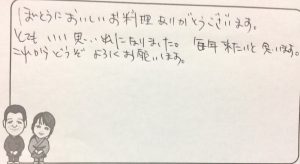 ほんとうにおいしいお料理ありがとうございます。
とてもいい思い出になりました。 毎年来たいと思います。
これからどうぞよろしくお願いします。